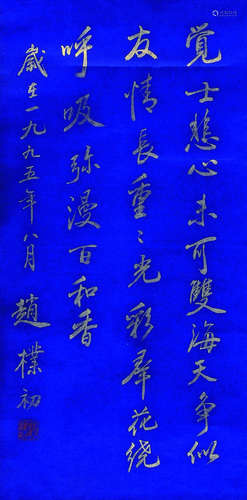 觉士悲心未可雙海天争似
友情長重々光彩羣花绕
呼吸弥漫百和香
歲在一九九五年八月
趙樸初